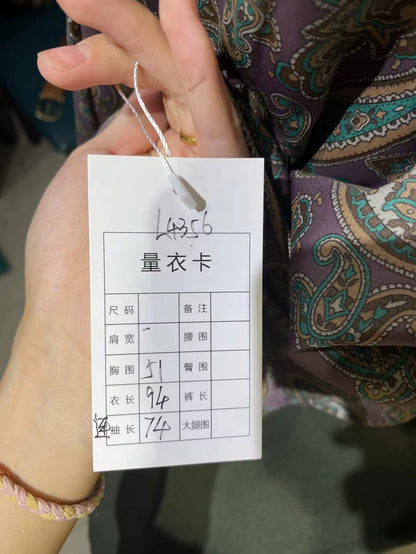 L4356
量衣卡
尺码 备注
肩宽 - 腰围
胸围 51 臀围
衣长 94 裤长
连袖长 74 大腿围